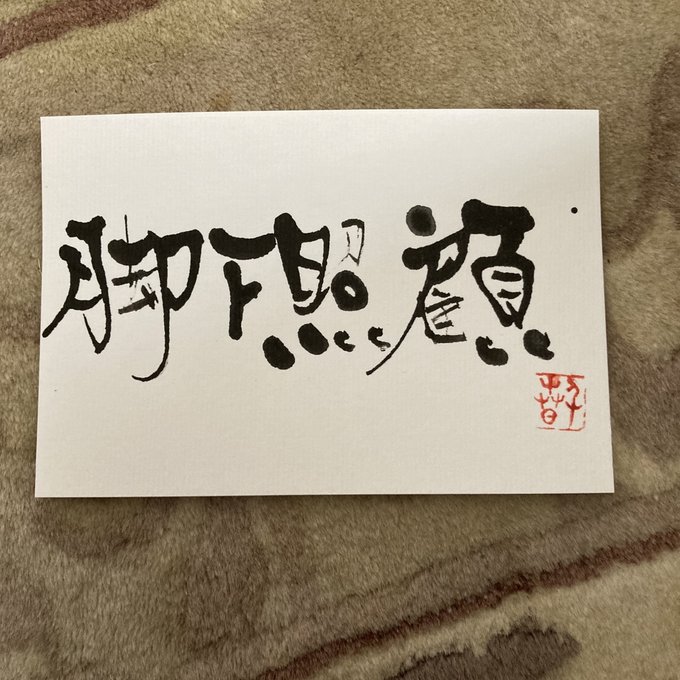 脚下照顧